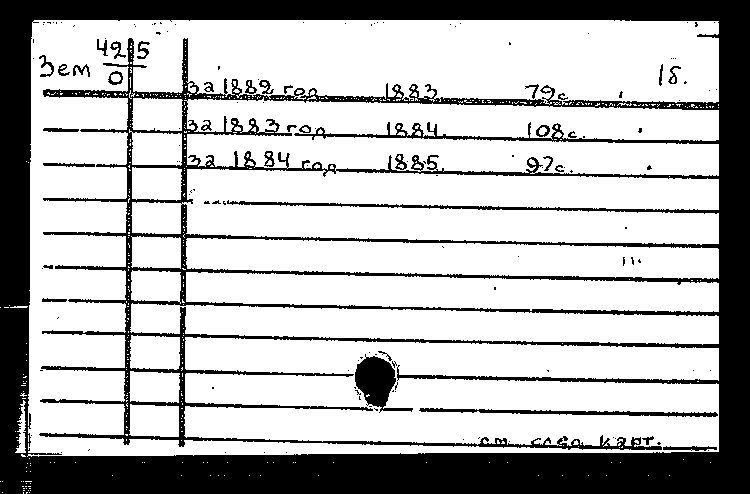 Зем 42 5
0
1б.
за 1882 год 1883 79с.
за 1883 год 1884. 108с.
за 1884 год 1885. 97с.
см. след. карт.